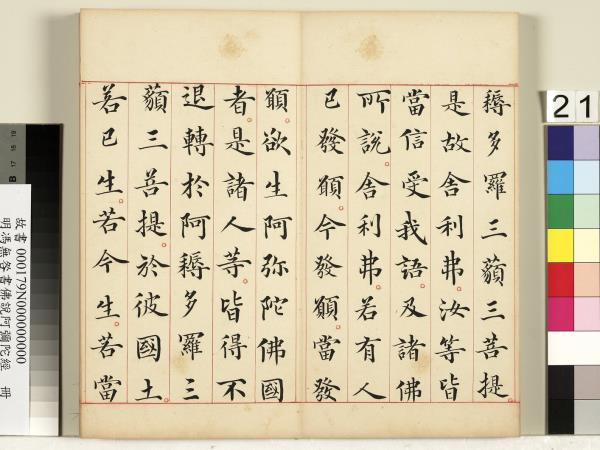 耨多羅三藐三菩提。
是故舍利弗。汝等皆
當信受我語。及諸佛
所說。舍利弗。若有人
已發願。今發願。當發
願。欲生阿弥陀佛國
者。是諸人等。皆得不
退轉於阿耨多羅三
藐三菩提。於彼國土。
若已生。若今生。若當
21
故書 000179N000000000
明馮無咎書佛說阿彌陀經 冊
B